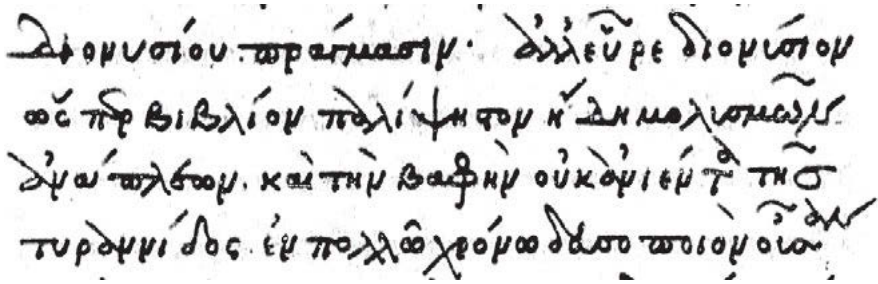 διονυσίου πράγμασιν· ἀλλ' εὗρε διονύσιον
ὥσπερ βιβλίον παλίψηστον ἤδη μολυσμῶν
ἀνάπλεων. καὶ τὴν βαφὴν οὐκ ἀνιέντα τῆς
τυραννίδος. ἐν πολλῶ χρόνω δευσοποιὸν οὖσαν